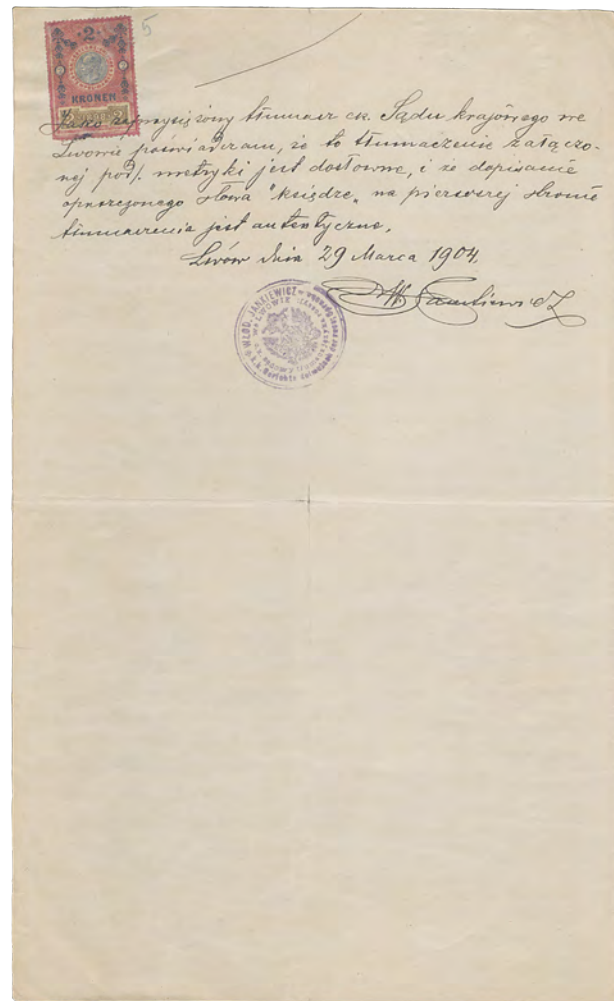 5
2
2 2
KRONEN
2 2
Jako zaprzysiężony tłumacz ck. Sądu krajowego we
Lwowie poświadczam, że to tłumaczenie załączo-
nej pod /. metryki jest dosłowne, i że dopisanie
opuszczonego słowa "księdze" na pierwszej stronie
tłumaczenia jest autentyczne.
Lwów dnia 29 Marca 1904.
WŁOD. JANKIEWICZ
we LWOWIE